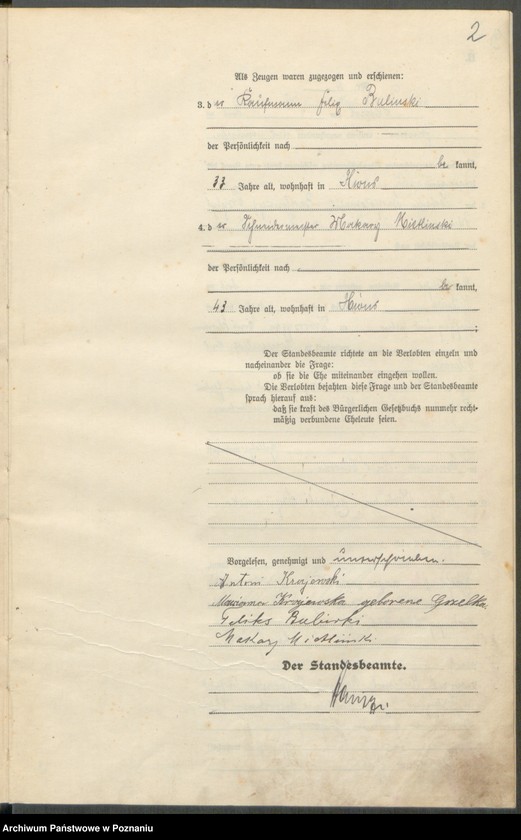 2
Als Zeugen waren zugezogen und erschienen:
3. der Kaufmann Felix Bulinski
der Persönlichkeit nach
be kannt,
33 Jahre alt, wohnhaft in
4. der Schneidermeister Makary
der Persönlichkeit nach
be kannt,
43 Jahre alt, wohnhaft in
Der Standesbeamte richtete an die Verlobten einzeln und
nacheinander die Frage:
ob sie die Ehe miteinander eingehen wollen.
Die Verlobten bejahten diese Frage und der Standesbeamte
sprach hierauf aus:
daß sie kraft des Bürgerlichen Gesetzbuchs nunmehr recht-
mäßig verbundene Eheleute seien.
Vorgelesen, genehmigt und unterschrieben.
Antoni Krajewski
Marianna Krajewska geborene
Feliks Buliński
Makary
Der Standesbeamte.
Archiwum Państwowe w Poznaniu